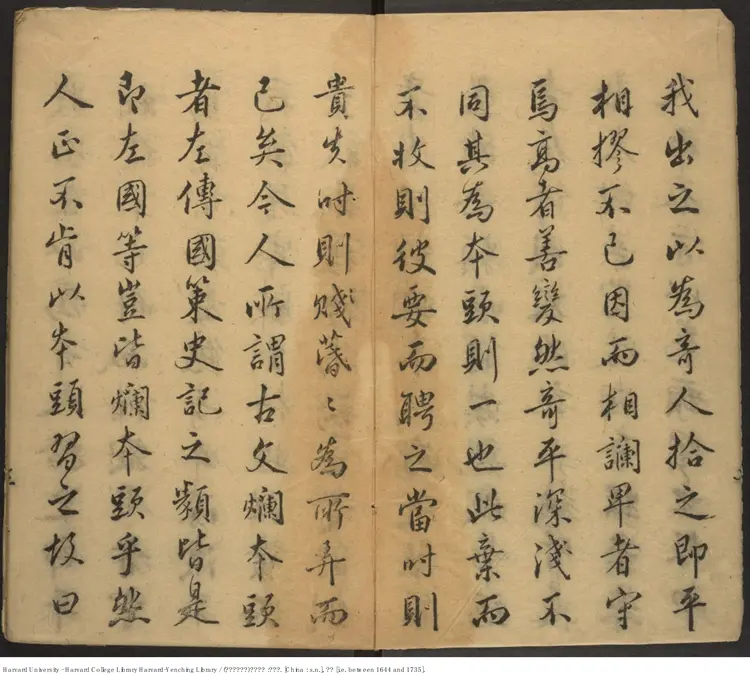 我出之以為奇人拾之即平
相摎不已因而相讕卑者守
焉高者善變然奇平深淺不
同其為本頭則一也此棄而
不收則彼要而聘之當时則
貴失时則賤瞢〻為所弄而
已矣今人所謂古文爛本頭
者左傳國策史記之類皆是
即左國等豈皆爛本頭乎然
人正不肯以本頭習之故曰
Harvard University - Harvard College Library Harvard-Yenching Library / (??????)???? :???. [China : s.n.], ?? [i.e. between 1644 and 1735].